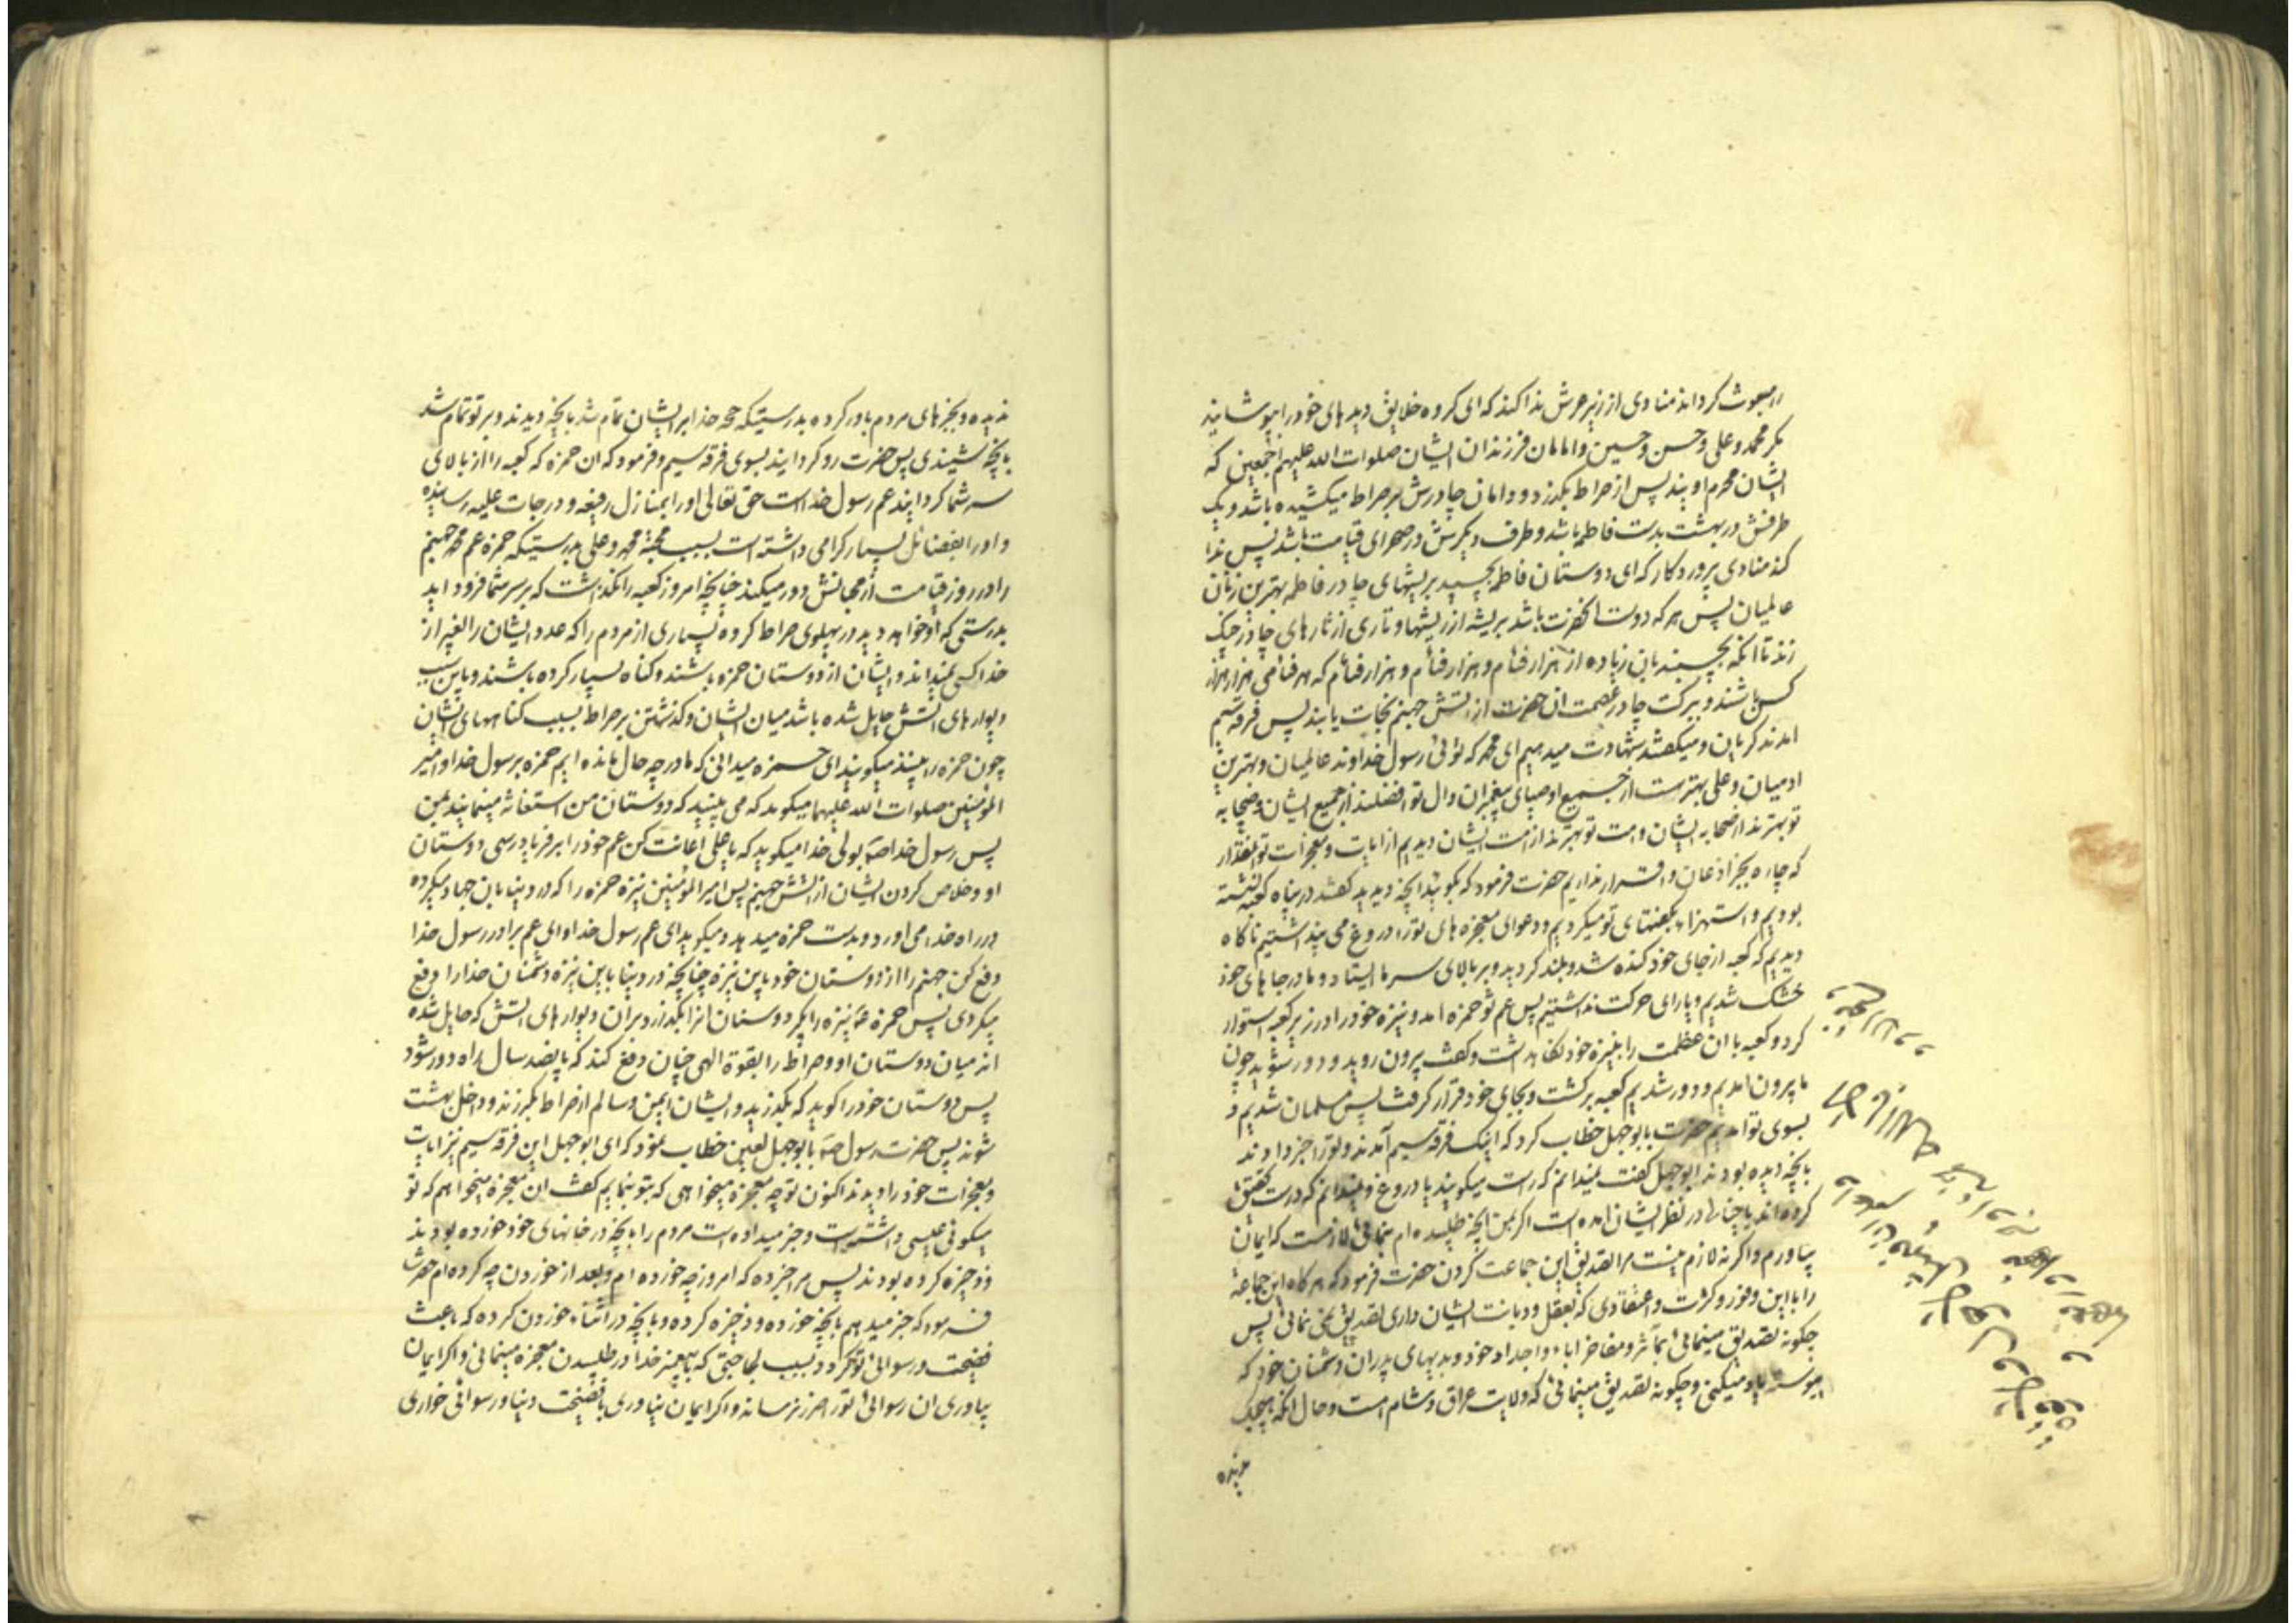 مبعوث کرداند منادی از زیر عرش ندا کند که ای کروه خلایق دیدهای خود را بپوشانید
مکر محمد و علی و حسن و حسین و امامان فرزندان ایشان صلوات الله علیهم اجمعین که
ایشان محرم اویند پس از صراط بکذرد و دامان چادرش بر صراط میکشیده باشد و یک
طرفش در بهشت بدست فاطمه باشد و طرف دیکرش در صحرای قیامت باشد پس ندا
کند منادی پروردکار که ای دوستان فاطمه بچسبید بریشهای چادر فاطمه بهترین زنان
عالمیان پس هر که دوست انحضرت باشد بریشه از ریشها و تاری از تارهای چادر چنک
زند تا انکه بچسبند بان زیاده از هزار فئام و هزار فئام و هزار فئام که هر فئامی هزار هزار
کس باشند و ببرکت چادر عصمت ان حضرت از اتش جهنم نجات یابند پس فرقه سیم
امدند کریان و میکفتند شهادت میدهیم ای محمد که توئی رسول خداوند عالمیان و بهترین
ادمیان و علی بهترست از جمیع اوصیای پیغمبران و ال تو افضلند از جمیع ایشان و صحابه
تو بهترند از صحابه ایشان و امت تو بهترند از امت ایشان دیدیم از ایات و معجزات تو انقدار
که چاره بجز اذعان و اقرار نداریم حضرت فرمود که بکوئید انچه دیدید کفتند در پناه کعبه نشسته
بودیم و استهزاء بکفتهای تو میکردیم و دعوای معجزه های تو را دروغ می پنداشتیم ناکاه
دیدیم که کعبه از جای خود کنده شد و بلند کردید و بر بالای سر ما ایستاد و ما در جاهای خود
خشک شدیم و یارای حرکت نداشتیم پس عم تو حمزه امد و نیزه خود را در زیر کعبه استوار
کرد و کعبه با ان عظمت را بنیزه خود نکاهداشت و کفت بیرون روید و دور شوید چون
ما بیرون امدیم و دور شدیم کعبه برکشت و بجای خود قرار کرفت پس مسلمان شدیم و
بسوی تو امدیم حضرت بابوجهل خطاب کرد که اینک فرقه سیم آمدند و تو را خبر دادند
بانچه دیده بودند ابوجهل کفت نمیدانم که راست میکویند یا دروغ و نمیدانم که درست تحقیق
کرده اند یا خیالی در نظر ایشان امده است اکر بمن انچه طلبیده ام بنمائی لازمست که ایمان
بیاورم و اکر نه لازم نیست مرا تصدیق این جماعت کردن حضرت فرمود که هرکاه این جماعة
را با این وفور و کثرت و اعتقادی که بعقل و دیانت ایشان داری تصدیق نمی نمائی پس
چکونه تصدیق مینمائی بمآثر و مفاخر اباء و اجداد خود و بدیهای پدران دشمنان خود که
پیوسته یاد میکنی و چکونه تصدیق مینمائی که ولایت عراق و شام است و حال انکه هیچیک
ندیده
ندیده و بخبرهای مردم باور کرده بدرستیکه حجه خدا بر ایشان تمام شد بانچه دیدند و بر تو تمام شد
بانچه شنیدی پس حضرت رو کردانید بسوی فرقه سیم و فرمود که ان حمزه که کعبه را از بالای
سر شما کردانید عم رسول خداست حق تعالی او را بمنازل رفیعه و درجات علیه رسانیده
و او را بفضائل بسیار کرامی داشته است بسبب محبة محمد و علی بدرستیکه حمزه عم محمد جهنم
را در روز قیامت از محبانش دور میکند چنانچه امروز کعبه را نکذاشت که بر سر شما فرود اید
بدرستی که او خواهد دید در پهلوی صراط کروه بسیاری از مردم را که عدد ایشان را بغیر از
خدا کسی نمیداند و ایشان از دوستان حمزه باشند و کناه بسیار کرده باشند و باین سبب
دیوارهای اتش حایل شده باشد میان ایشان و کذشتن بر صراط بسبب کناههای ایشان
چون حمزه را بینند میکویند ای حمزه میدانی که ما در چه حال مانده ایم حمزه برسول خدا و امیر
المؤمنین صلوات الله علیهما میکوید که می بینید که دوستان من استغاثه مینمایند بمن
پس رسول خدا صه بولی خدا میکوید که یا علی اعانت کن عم خود را بر فریادرسی دوستان
او و خلاص کردن ایشان از اتش جهنم پس امیر المؤمنین نیزه حمزه را که در دنیا بان جهاد میکرده
در راه خدا می اورد و بدست حمزه میدهد و میکوید ای عم رسول خدا و ای عم برادر رسول خدا
دفع کن جهنم را از دوستان خود باین نیزه چنانچه در دنیا باین نیزه دشمنان خدا را دفع
میکردی پس حمزه نیزه را بکیرد و سنان انرا بکذارد بران دیوارهای اتش که حایل شده
اند میان دوستان او و صراط را بقوة الهی چنان دفع کند که پانصد سال راه دور شود
پس دوستان خود را کوید که بکذرید و ایشان ایمن و سالم از صراط بکذرند و داخل بهشت
شوند پس حضرت رسول صه بابوجهل لعین خطاب نمود که ای ابوجهل این فرقه سیم نیز ایات
و معجزات خود را دیدند اکنون تو چه معجزه میخواهی که بتو بنمایم کفت ان معجزه میخواهم که تو
میکوئی عیسی داشته است و خبر میداده است مردم را بانچه در خانهای خود خورده بودند
و ذخیره کرده بودند پس مرا خبر ده که امروز چه خورده ام و بعد از خوردن چه کرده ام حضرت
فرمود که خبر میدهم بانچه خورده و ذخیره کرده و بانچه در اثناء خوردن کرده که باعث
فضیحت و رسوائی تو کردد بسبب لجاجتی که با پیغمبر خدا در طلبیدن معجزه مینمائی و اکر ایمان
بیاوری ان رسوائی تو را ضرر نرساند و اکر ایمان نیاوری با فضیحت دنیا و رسوائی خواری